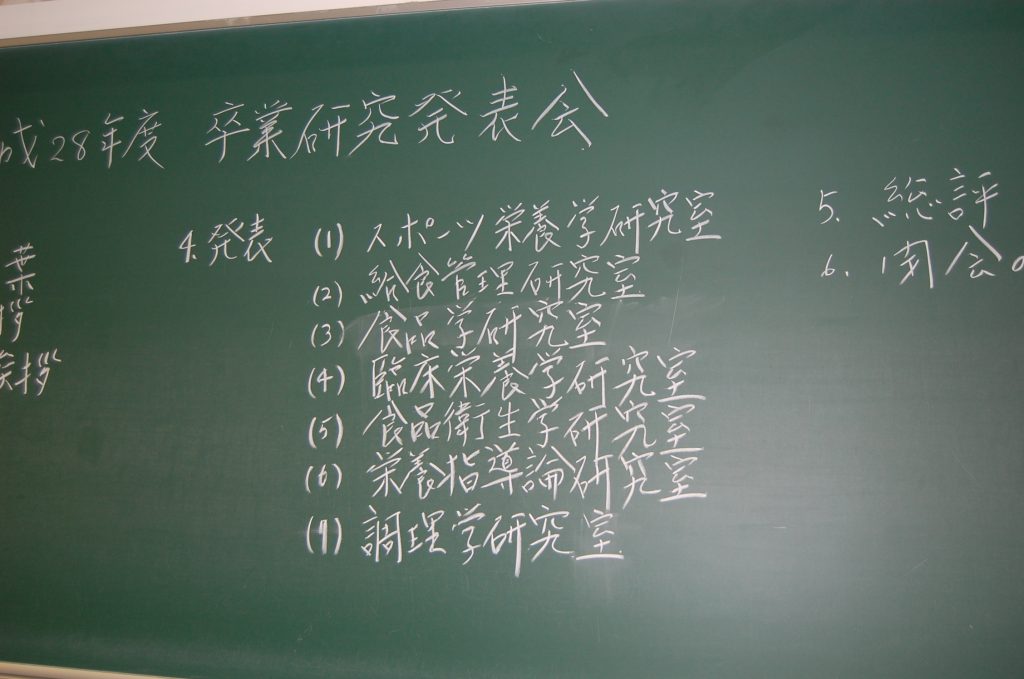 成28年度 卒業研究発表会
葉
拶
挨拶
4. 発表
(1) スポーツ栄養学研究室
(2) 給食管理研究室
(3) 食品学研究室
(4) 臨床栄養学研究室
(5) 食品衛生学研究室
(6) 栄養指導論研究室
(7) 調理学研究室
5. 総評
6. 閉会の